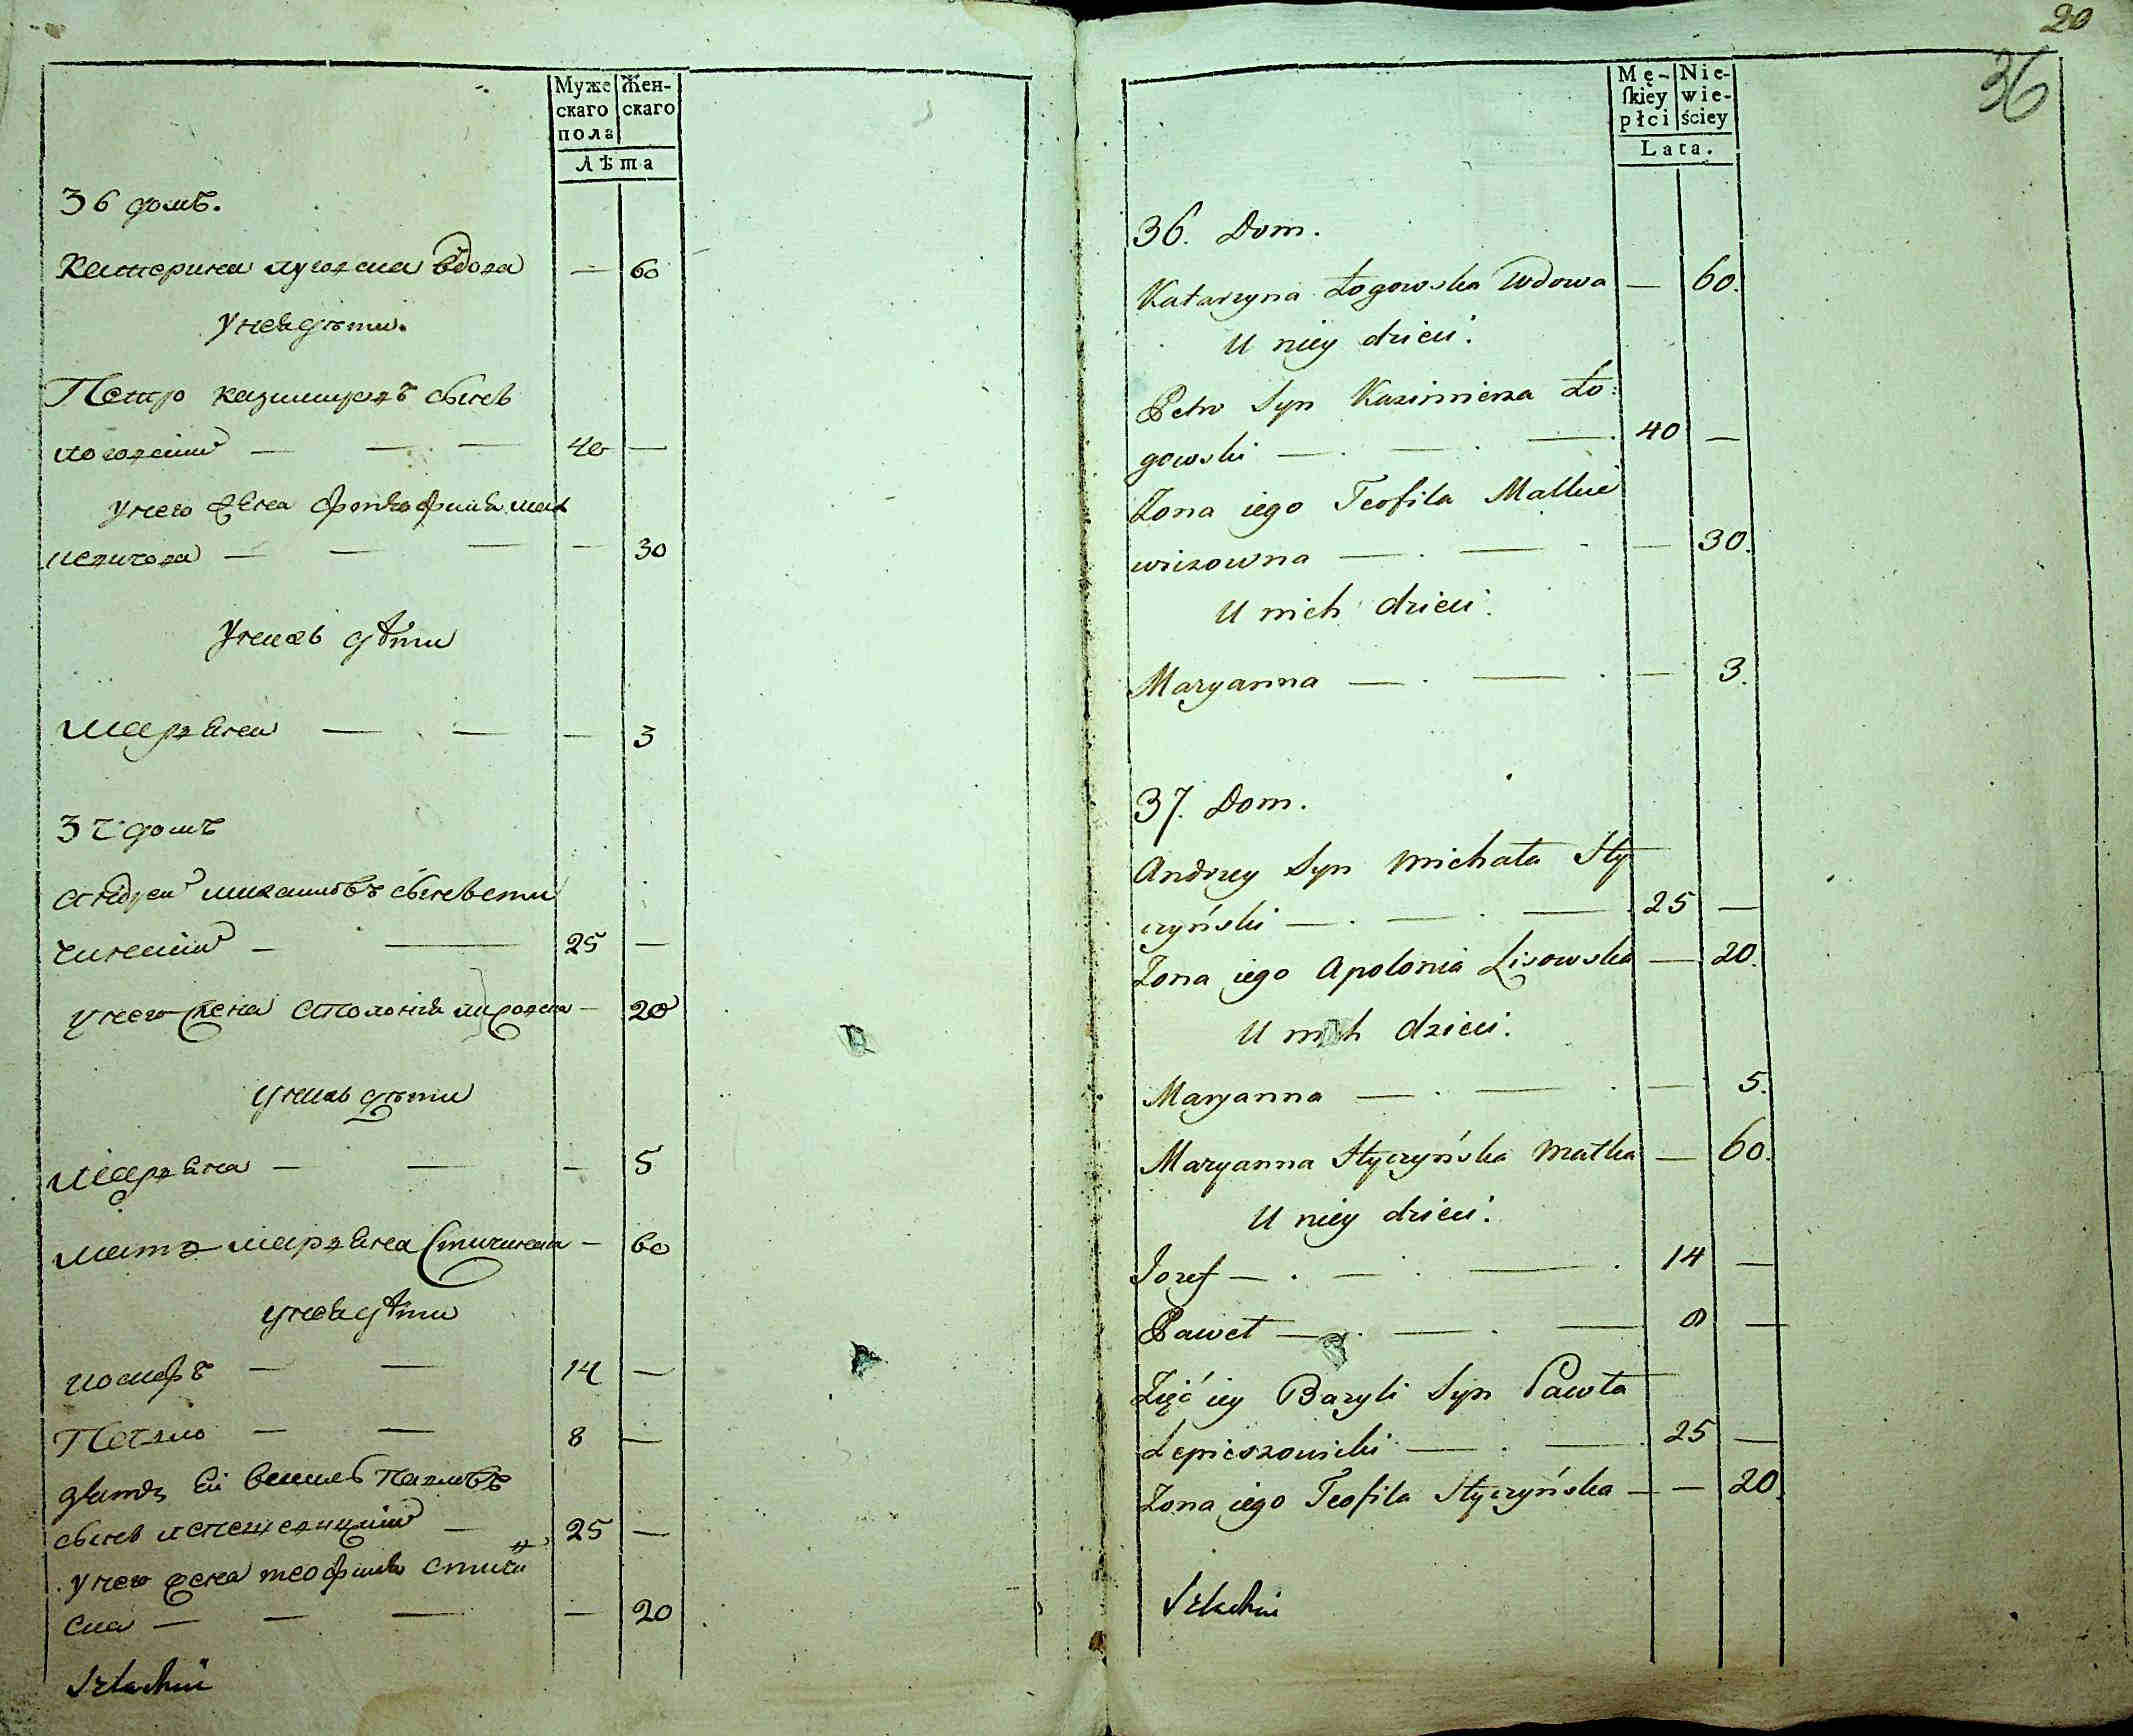 Муже
скаго
пола
Жен-
скаго
Лѣта
36 домъ.
Катерина логовска вдова — 60
У нея дѣти.
Петро казимировъ сынъ
логовскій — — — 40 —
у него жена
— — — — 30
У нихъ дѣти
Маріяна — — — 3
37 домъ
Андрей михайловъ сынъ сти
чинскій — — 25 —
у него жена аполонія — 20
у нихъ дѣти
Маріяна — — — 5
Мать маріяна Стичинска — 60
у нея дѣти
иосифъ — — 14 —
Павло — — 8 —
зять ей василь павловъ
сынъ — 25 —
у него жена теофиля стичи
ска — — — — 20
Szlachci
20
36
Mę-
ſkiey
płci
Nie-
wie-
ściey
Lata.
36. Dom.
Katarzyna Łogowska Wdowa — 60.
U niey dzieci.
Petr Syn Kazimierza Ło:
gowski — . — . — . 40 —
Żona iego Teofila
— . — - — 30.
U nich dzieci.
Maryanna — . — . — 3.
37. Dom.
Andrzey Syn Michała Sty
czyński — . — . — . 25 —
Żona iego Apolonia Lisowska — 20.
U nich dzieci.
Maryanna — . — . — 5.
Maryanna Styczyńska Matka — 60.
U niey dzieci.
Jozef — . — . — . 14 —
Paweł — . — . — 8 —
Zięć iey Bazyli Syn Pawła
Lepieszowicki — . — . 25 —
Żona iego Teofila Styczyńska — — 20.
Szlachci